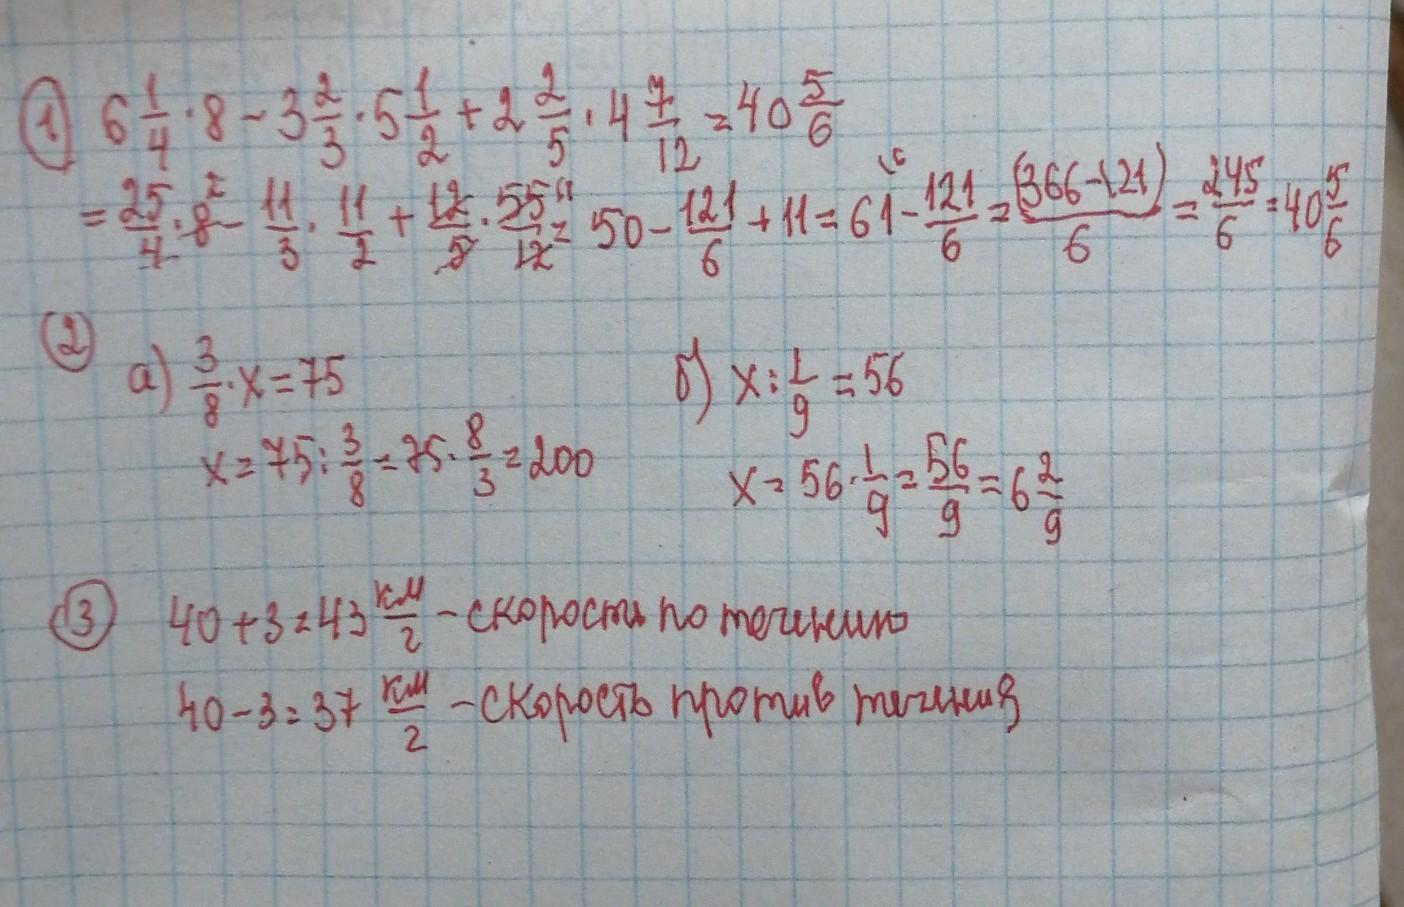 1) 6 1/4 · 8 − 3 2/3 · 5 1/2 + 2 2/5 · 4 7/12 = 40 5/6
= 25/4 · 8² − 11/3 · 11/2 + 12/5 · 55¹¹/12 = 50 − 121/6 + 11 = 61⁽⁶ − 121/6 = (366−121)/6 = 245/6 = 40 5/6
2
а) 3/8 · x = 75
x = 75 : 3/8 = 75 · 8/3 = 200
б) x : 1/9 = 56
x = 56 · 1/9 = 56/9 = 6 2/9
3 40 + 3 = 43 км/г − скорость по течению
40 − 3 = 37 км/г − скорость против течения